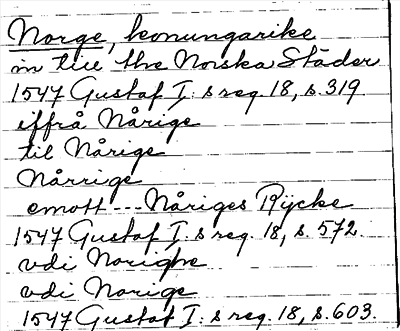 Norge, konungarike
in till the Norska Städer
1547 Gustaf I:s reg. 18, s. 319
iffrå Nårige
til Nårige
Nårrige
emott --- Nåriges Rijcke
1547 Gustaf I:s reg. 18, s. 572.
vdi Norighe
vdi Norige
1547 Gustaf I:s reg. 18, s. 603.